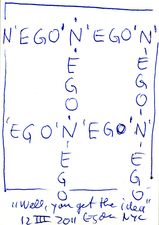 N'EGO'N'EGO'N'
E E
G G
O O
'EGO'N'EGO'N'
E E
G G
O O
"Well, you get the idea"
12 III 2011 NYC